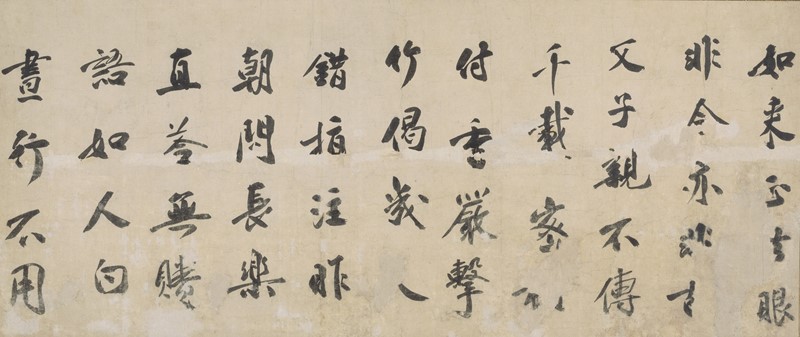 如来正法眼
非今亦非古
父子親不傳
千載密相
付香嚴擊
竹偈幾人
錯指注昨
朝聞長樂
直荅無賸
語如人白
晝行不用